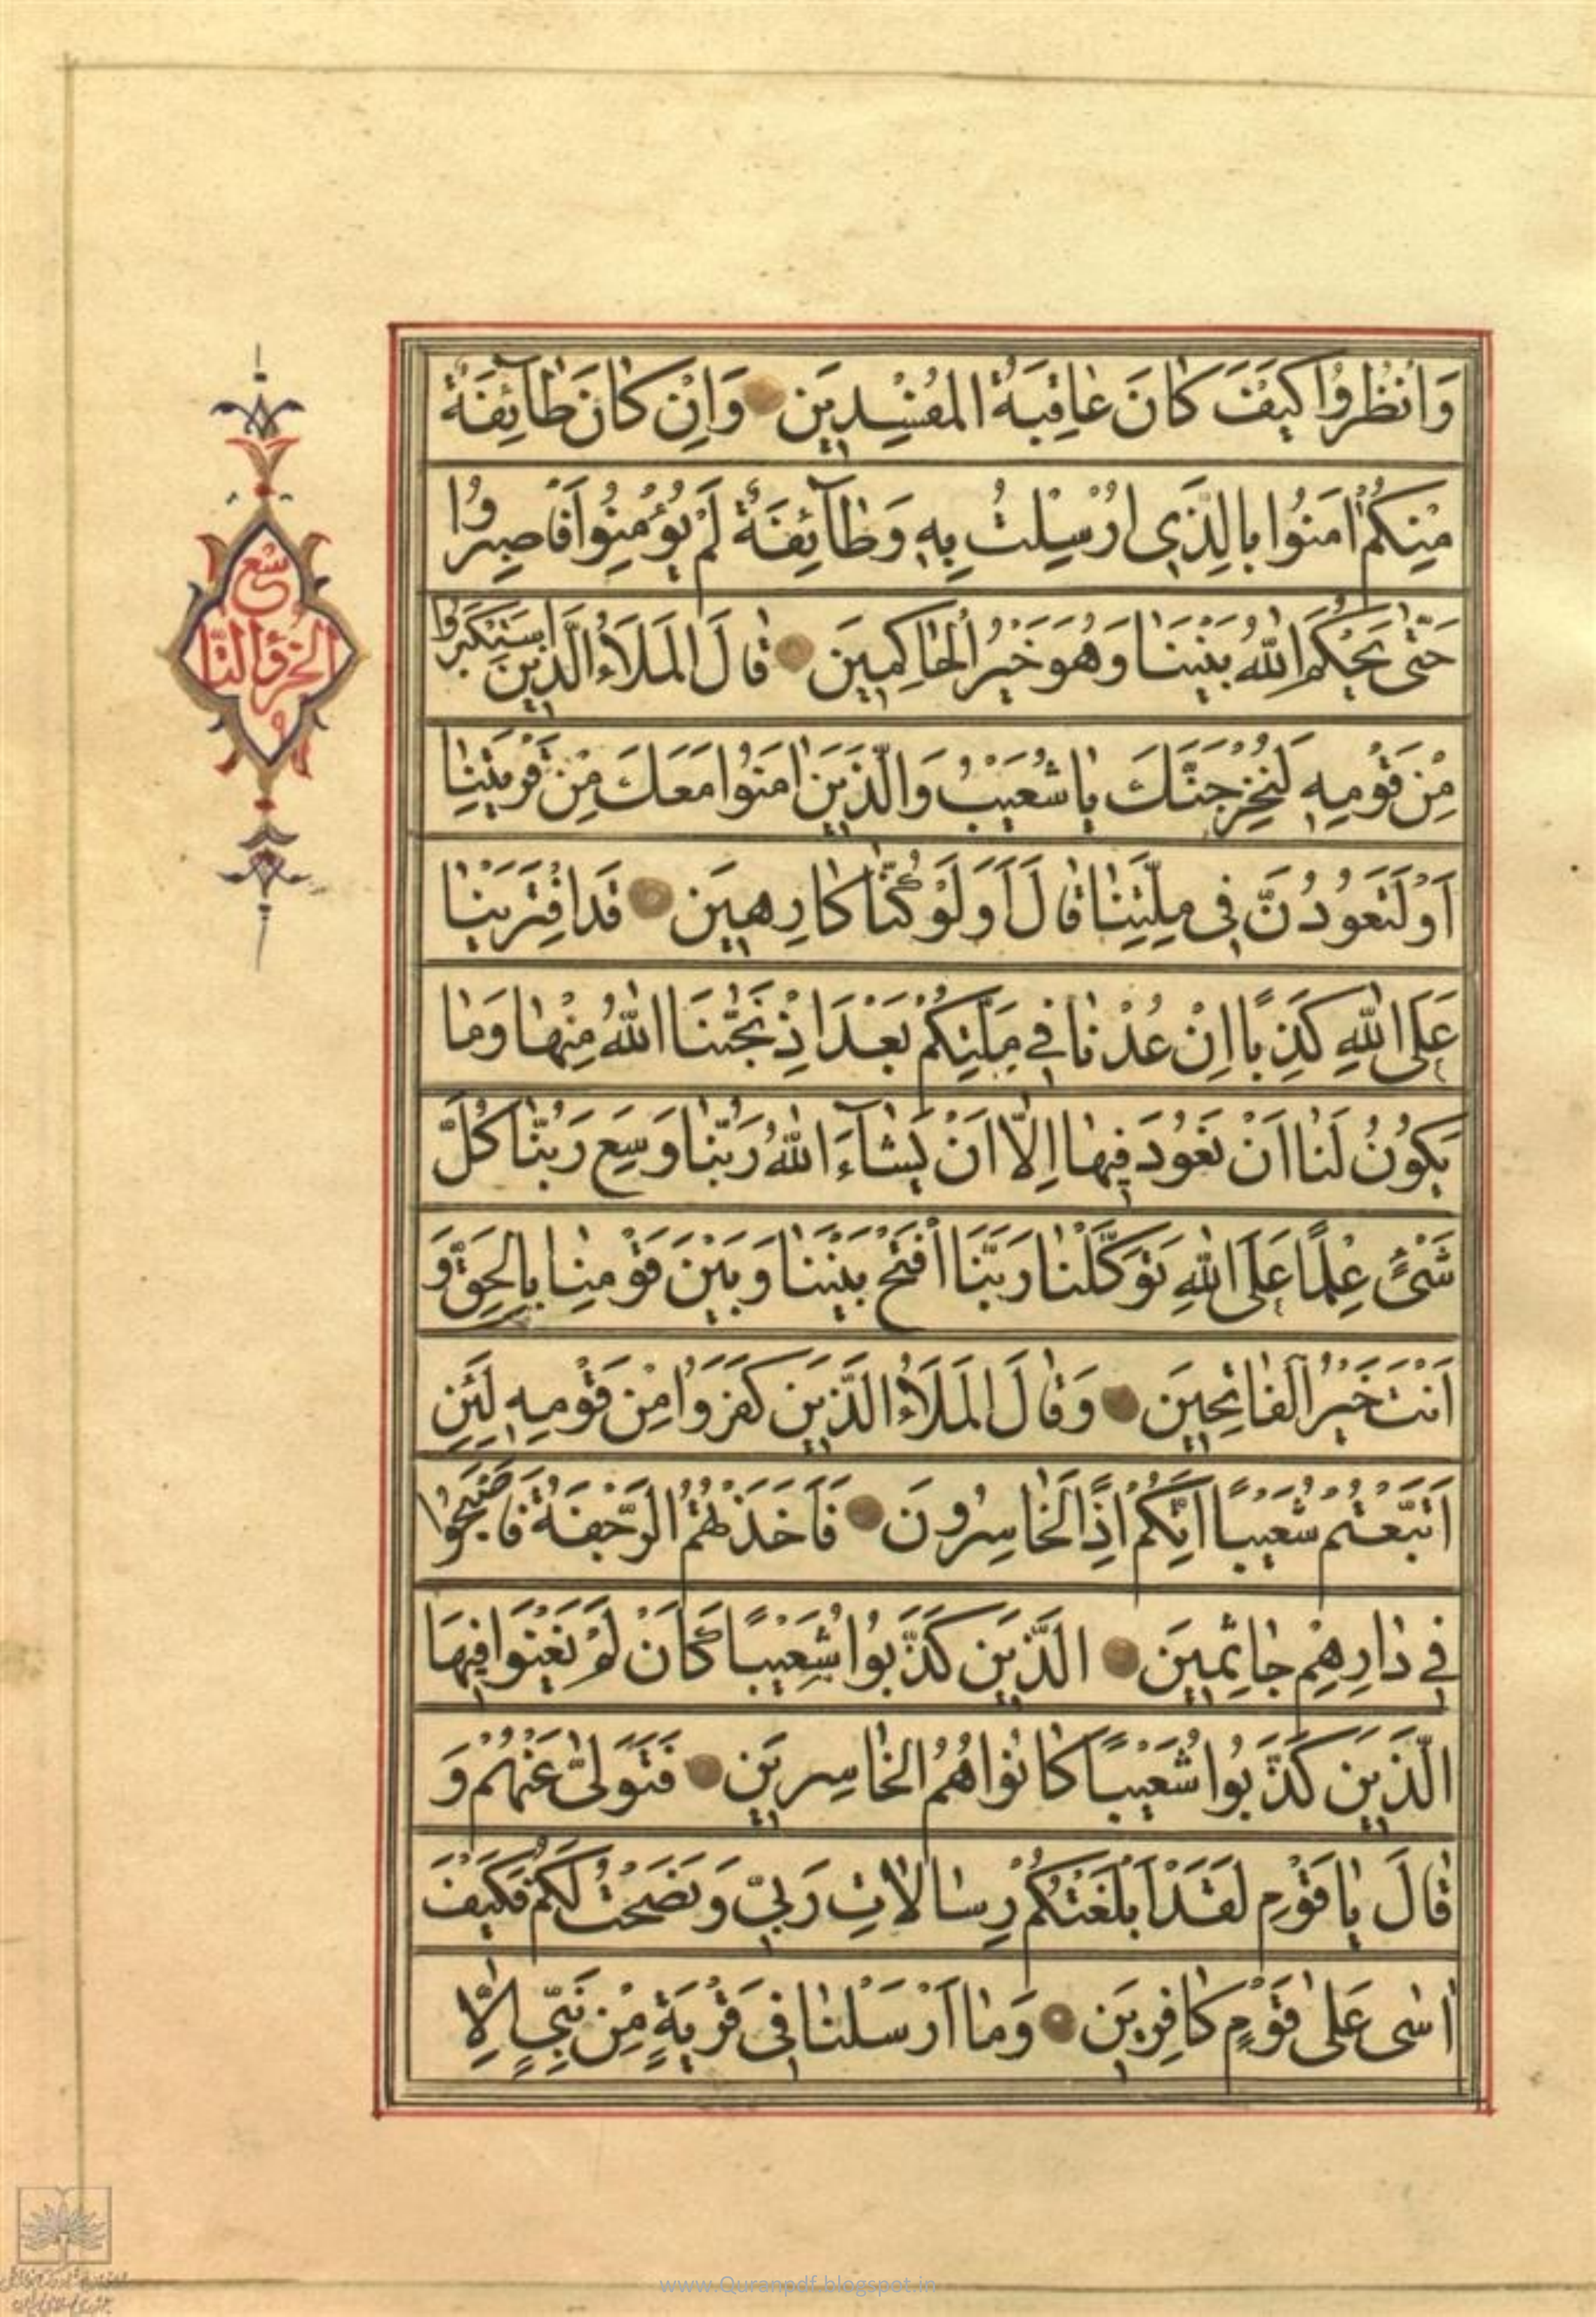 وَانْظُرُوا كَيْفَ كَانَ عَاقِبَةُ الْمُفْسِدِينَ وَاِنْ كَانَ طَآئِفَةٌ
مِنْكُمْ اٰمَنُوا بِالَّذِي اُرْسِلْتُ بِهِ وَطَآئِفَةٌ لَمْ يُؤْمِنُوا فَاصْبِرُوا
حَتّٰى يَحْكُمَ اللّٰهُ بَيْنَنَا وَهُوَ خَيْرُ الْحَاكِمِينَ قَالَ الْمَلَاُ الَّذِينَ اسْتَكْبَرُوا
مِنْ قَوْمِهِ لَنُخْرِجَنَّكَ يَا شُعَيْبُ وَالَّذِينَ اٰمَنُوا مَعَكَ مِنْ قَرْيَتِنَا
اَوْ لَتَعُودُنَّ فِي مِلَّتِنَا قَالَ اَوَلَوْ كُنَّا كَارِهِينَ قَدِ افْتَرَيْنَا
عَلَى اللّٰهِ كَذِبًا اِنْ عُدْنَا فِي مِلَّتِكُمْ بَعْدَ اِذْ نَجّٰنَا اللّٰهُ مِنْهَا وَمَا
يَكُونُ لَنَا اَنْ نَعُودَ فِيهَا اِلَّا اَنْ يَشَآءَ اللّٰهُ رَبُّنَا وَسِعَ رَبُّنَا كُلَّ
شَيْءٍ عِلْمًا عَلَى اللّٰهِ تَوَكَّلْنَا رَبَّنَا افْتَحْ بَيْنَنَا وَبَيْنَ قَوْمِنَا بِالْحَقِّ وَ
اَنْتَ خَيْرُ الْفَاتِحِينَ وَقَالَ الْمَلَاُ الَّذِينَ كَفَرُوا مِنْ قَوْمِهِ لَئِنِ
اتَّبَعْتُمْ شُعَيْبًا اِنَّكُمْ اِذًا لَخَاسِرُونَ فَاَخَذَتْهُمُ الرَّجْفَةُ فَاَصْبَحُوا
فِي دَارِهِمْ جَاثِمِينَ الَّذِينَ كَذَّبُوا شُعَيْبًا كَاَنْ لَمْ يَغْنَوْا فِيهَا
الَّذِينَ كَذَّبُوا شُعَيْبًا كَانُوا هُمُ الْخَاسِرِينَ فَتَوَلّٰى عَنْهُمْ وَ
قَالَ يَا قَوْمِ لَقَدْ اَبْلَغْتُكُمْ رِسَالَاتِ رَبِّي وَنَصَحْتُ لَكُمْ فَكَيْفَ
اٰسٰى عَلٰى قَوْمٍ كَافِرِينَ وَمَا اَرْسَلْنَا فِي قَرْيَةٍ مِنْ نَبِيٍّ اِلَّا
www.Quranpdf.blogspot.in